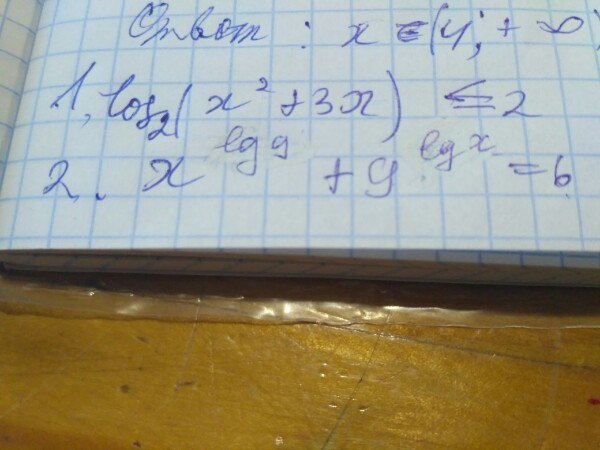 Ответ : x ∈ (4; + ∞)
1, log₂(x² + 3x) ≤ 2
2. x^{lg 9} + 9^{lg x} = 6